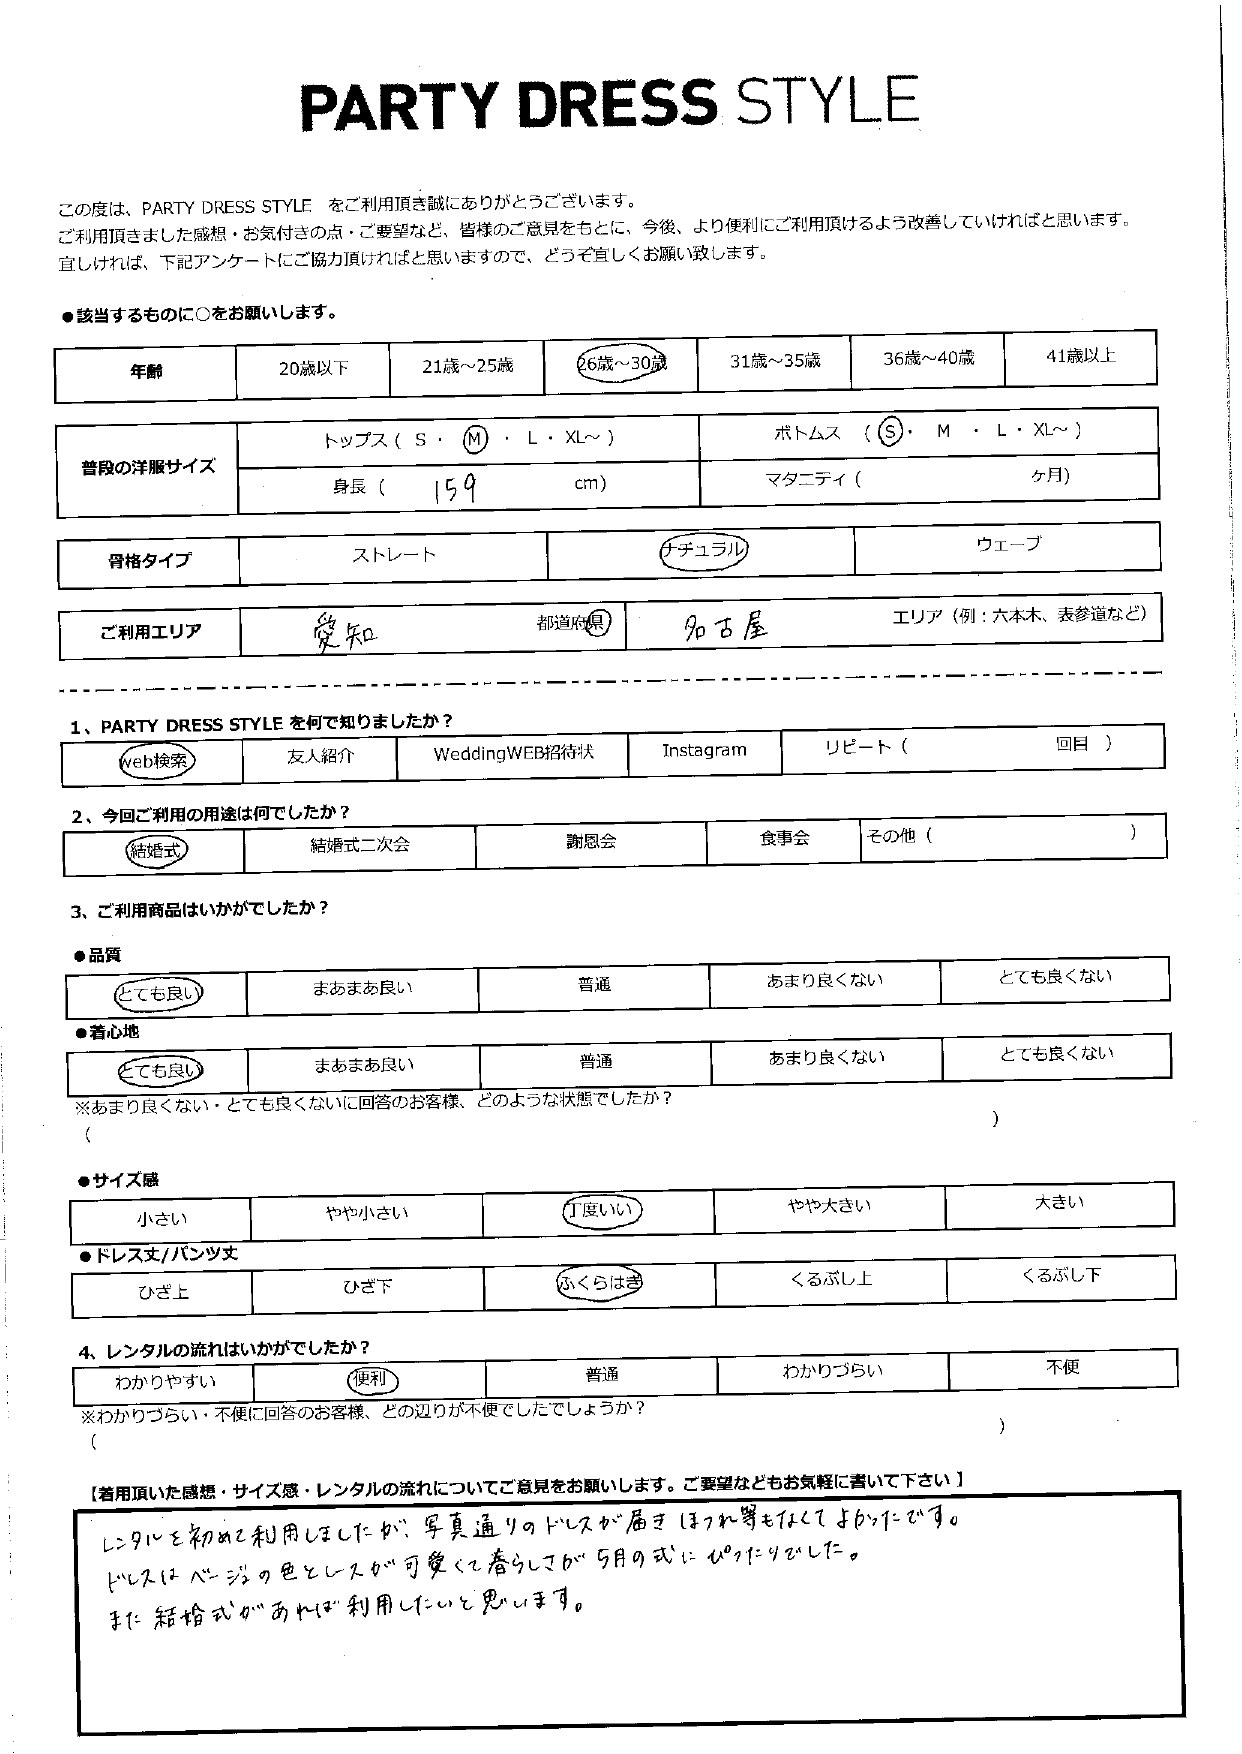 PARTY DRESS STYLE
この度は、PARTY DRESS STYLE をご利用頂き誠にありがとうございます。
ご利用頂きました感想・お気付きの点・ご要望など、皆様のご意見をもとに、今後、より便利にご利用頂けるよう改善していければと思います。
宜しければ、下記アンケートにご協力頂ければと思いますので、どうぞ宜しくお願い致します。
●該当するものに○をお願いします。
年齢 20歳以下 21歳～25歳 26歳～30歳 31歳～35歳 36歳～40歳 41歳以上
普段の洋服サイズ
トップス( S ・ M ・ L ・ XL～ ) ボトムス ( S ・ M ・ L ・ XL～ )
身長 ( 159 cm) マタニティ ( ヶ月)
骨格タイプ ストレート ナチュラル ウェーブ
ご利用エリア 愛知 都道府県 名古屋 エリア（例：六本木、表参道など）
1、PARTY DRESS STYLE を何で知りましたか？
web検索 友人紹介 WeddingWEB招待状 Instagram リピート ( 回目 )
2、今回ご利用の用途は何でしたか？
結婚式 結婚式二次会 謝恩会 食事会 その他 ( )
3、ご利用商品はいかがでしたか？
●品質
とても良い まあまあ良い 普通 あまり良くない とても良くない
●着心地
とても良い まあまあ良い 普通 あまり良くない とても良くない
※あまり良くない・とても良くないに回答のお客様、どのような状態でしたか？
( )
●サイズ感
小さい やや小さい 丁度いい やや大きい 大きい
●ドレス丈/パンツ丈
ひざ上 ひざ下 ふくらはぎ くるぶし上 くるぶし下
4、レンタルの流れはいかがでしたか？
わかりやすい 便利 普通 わかりづらい 不便
※わかりづらい・不便に回答のお客様、どの辺りが不便でしたでしょうか？
( )
【着用頂いた感想・サイズ感・レンタルの流れについてご意見をお願いします。ご要望などもお気軽に書いて下さい】
レンタルを初めて利用しましたが、写真通りのドレスが届きほつれ等もなくてよかったです。
ドレスはベージュの色とレースが可愛くて春らしさが5月の式にぴったりでした。
また結婚式があれば利用したいと思います。